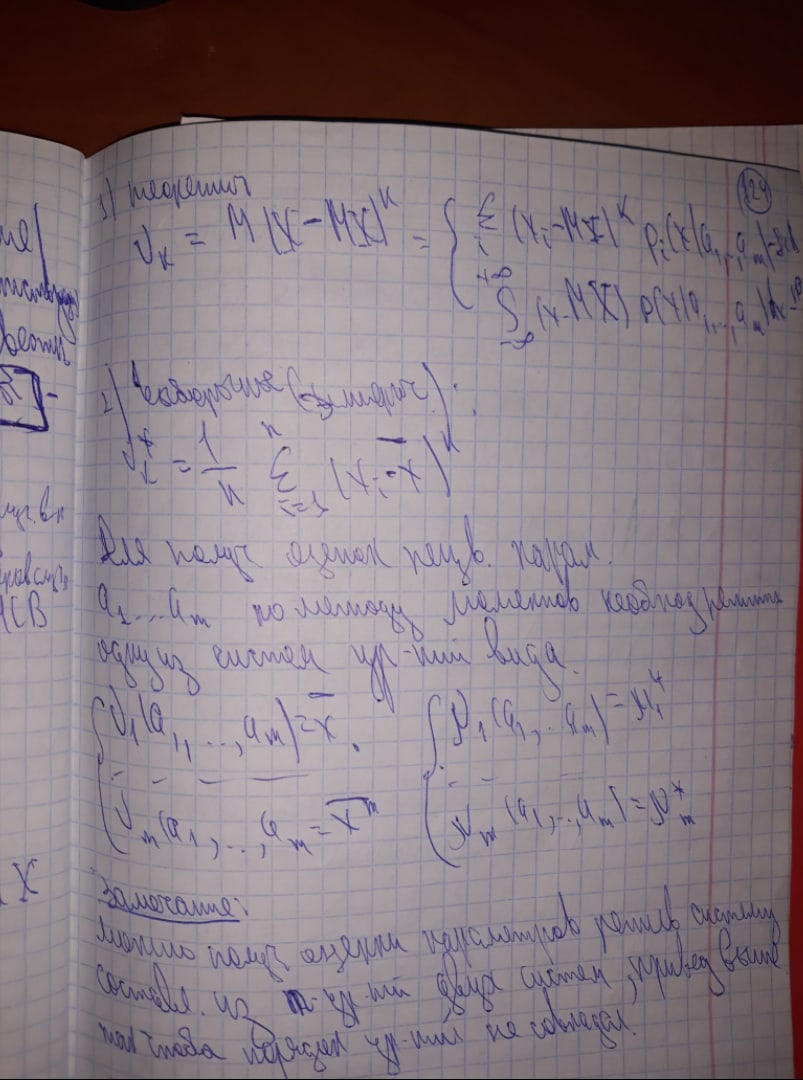 124
1) теоретич
ν_k = M(X − MX)^k = { Σ_i (x_i − MX)^k p_i(x|a_1,..,a_m)
∫_{−∞}^{+∞} (x − MX) p(x|a_1,..,a_m) dx
2) Выборочные (эмпирич.):
ν_k^* = 1/n Σ_{i=1}^n (x_i − x̄)^k
Для получ оценок неизв. парам.
a_1...a_m по методу моментов необход решить
одну из систем ур-ний вида.
{ ν_1(a_1,...,a_m) = x̄ . { μ_1(a_1,..a_m) = μ_1^*
– – – – –
ν_m(a_1,..,a_m = x̄^m μ_m(a_1,..,a_m) = μ_m^*
Замечание:
можно получ оценки параметров решив систему
составл. из ур-ний двух систем, привед выше
так чтобы порядок ур-ний не совпадал.
ме/
НСВ
X